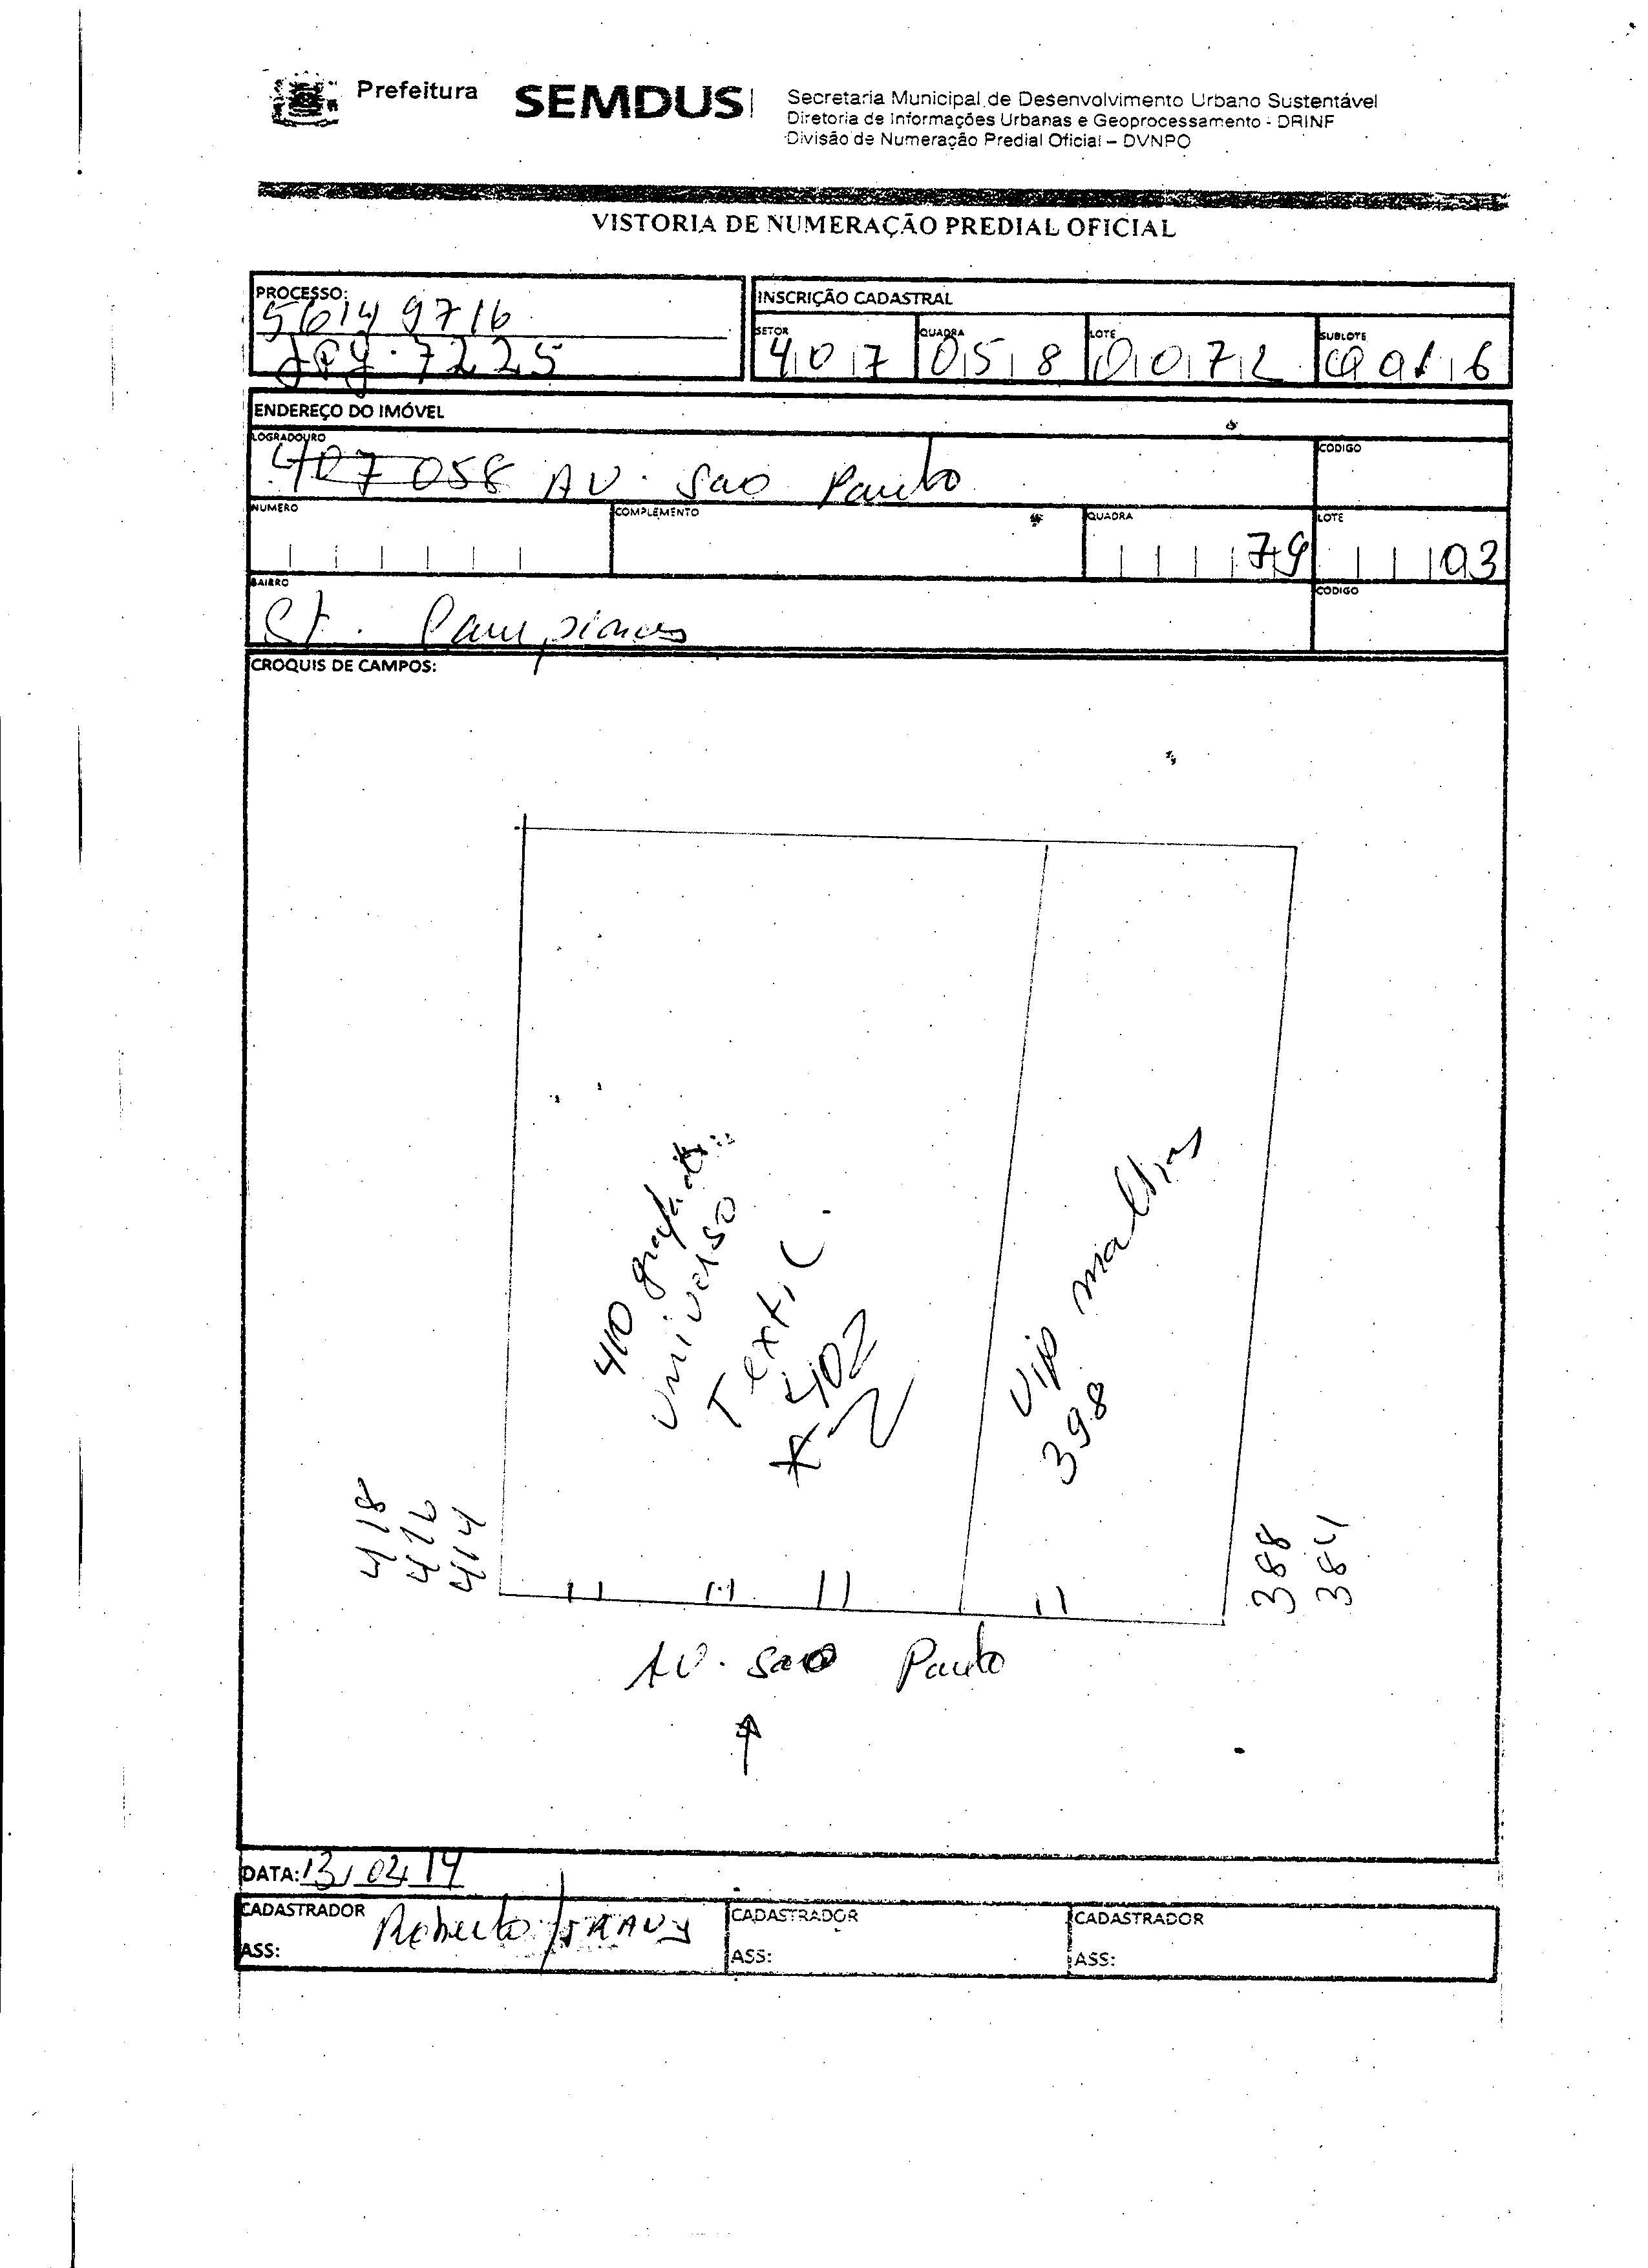 Prefeitura SEMDUS
Secretaria Municipal de Desenvolvimento Urbano Sustentável
Diretoria de Informações Urbanas e Geoprocessamento - DRINF
Divisão de Numeração Predial Oficial – DVNPO
VISTORIA DE NUMERAÇÃO PREDIAL OFICIAL
PROCESSO:
56149716
7225
INSCRIÇÃO CADASTRAL
SETOR QUADRA LOTE SUBLOTE
407 058 0072
ENDEREÇO DO IMÓVEL
LOGRADOURO CODIGO
407 058 AV. Sao Paulo
NUMERO COMPLEMENTO QUADRA LOTE
79 03
BAIRRO CODIGO
St. Campinas
CROQUIS DE CAMPOS:
410
Universo
Textil
402
Vip malhas
398
418
416
414
388
384
AV. Sao Paulo
DATA: 13/02/14
CADASTRADOR Roberto CADASTRADOR CADASTRADOR
ASS: ASS: ASS: